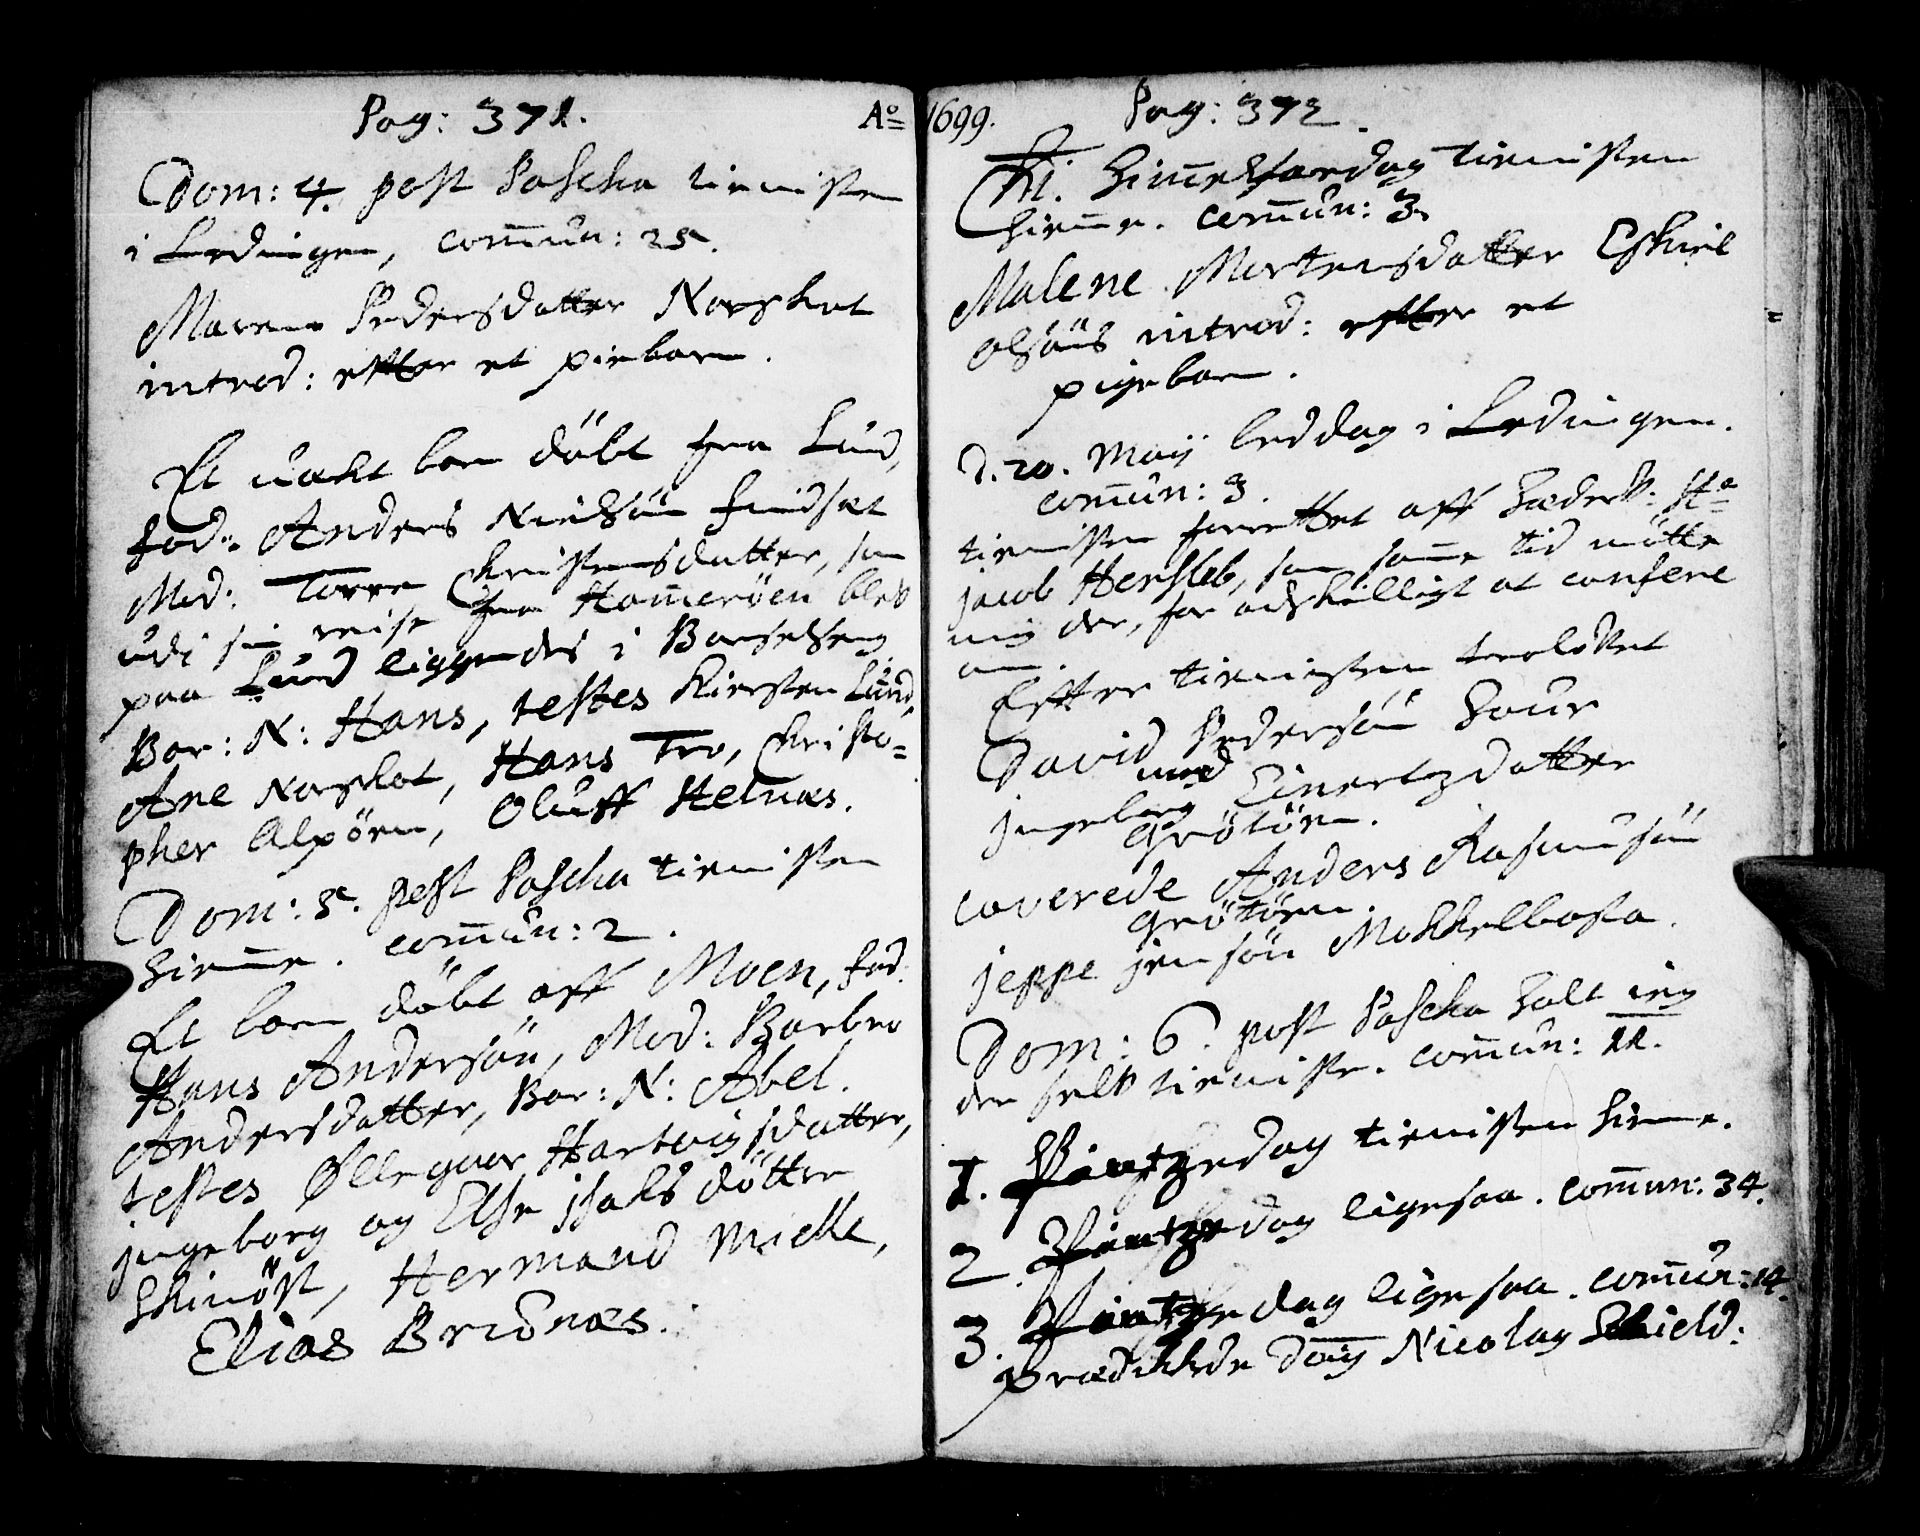 Pag: 371.
Dom: 4. post Pascha tienisten
i Lødingen, com̄un: 25.
Maren Pedersdatter Norskot
introd: efter et piebarn.
Et uækt barn döbt fra Lund,
fad: Anders Nielsön findsæt
Mod: Torre Christensdatter, som
udi sin reise fra Ham̄eröen blef
paa Lund liggendes i Barselseng
Bar: N: Hans, testes Kiersten Lund,
Ane Norskot, Hans Tro, Christo=
pher Alpöen, Oluff Helnæs.
Dom: 5. post Pascha tienisten
hiem̄e. com̄un: 2.
Et barn döbt aff Moen, fad:
Hans Andersön, Mod: Barbro
Andersdatter, Bar: N: Abel.
testes Øllegaar Hartvigsdatter,
jngeborg og Else jsaks döttre
Skinöst, Hermand Mickl,
Elias Brednæs.
A° 1699.
Pag: 372.
Chr̄i. Him̄elfardag tienisten
hiem̄e. com̄un: 3.
Malene Mortensdatter Eskiel
olsöns introd: efter et
pigebarn.
d. 20. Maij beddag i Lødingen.
com̄un: 3.
tienisten forrettet aff Hæderl: H^r
jacob Hersleb, som sam̄e tid mötte
mig der, for adskilligt at confere
om.
Efter tienisten trolofvet
David Pedersön
med
jngeborg Einertzdatter
Grötöen.
Caverede Anders Rasmusön
Grötöen.
jeppe jensön Mokkelbosta.
Dom: 6. post Pascha Holt ieg
der selv tieniste. com̄un: 11.
1. Pintzedag tienisten hiem̄e.
2. Pintzedag ligesaa. com̄un: 34.
3. Pintzedag ligesaa. com̄un: 14.
Prædikede Dn̄s Nicolay Schield: